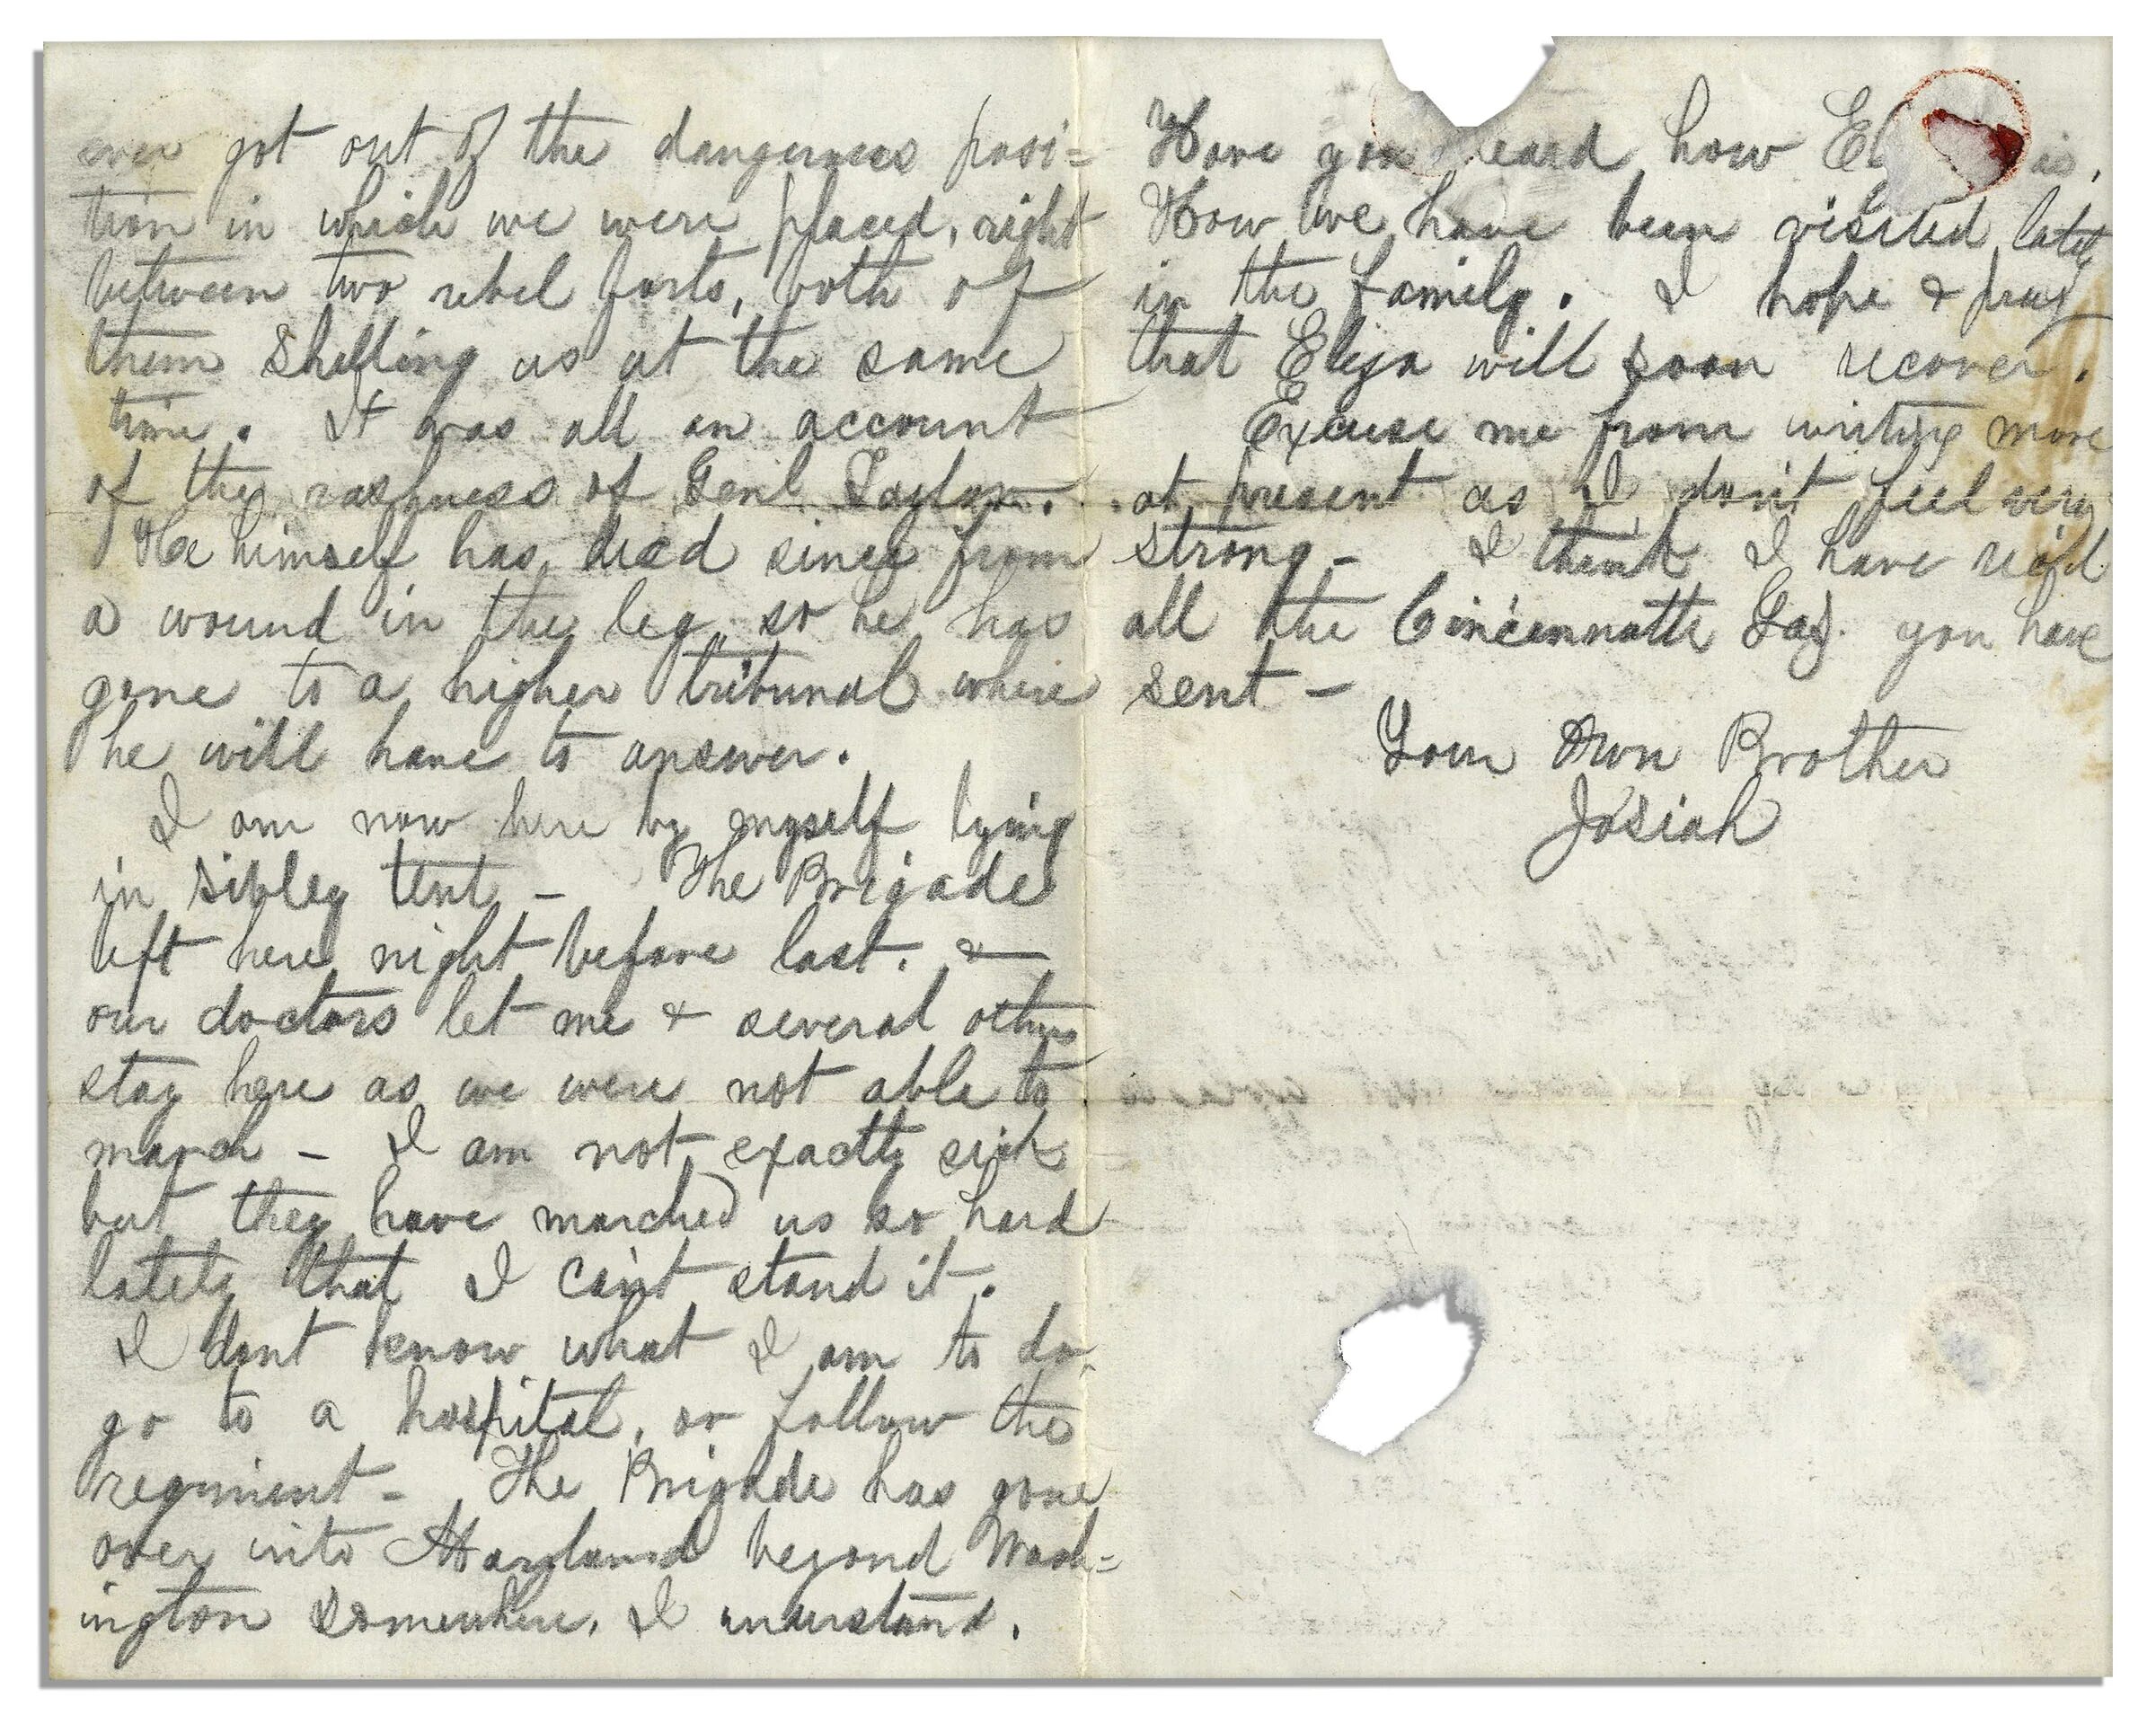 ever got out of the dangerous posi=
tion in which we were placed, right
between two rebel forts, both of
them shelling us at the same
time. It was all on account
of the rashness of Genl. Taylor.
He himself has died since from
a wound in the leg, so he has
gone to a higher tribunal where
he will have to answer.
I am now here by myself lying
in Sibley tent - The Brigade
left here night before last. &
our doctors let me & several others
stay here as we were not able to
march - I am not exactly sick
but they have marched us so hard
lately that I can't stand it.
I dont know what I am to do
go to a hospital, or follow the
regiment - The Brigade has gone
over into Maryland beyond Wash=
ington somewhere, I understand.
Have you heard how El is.
How we have been visited lately
in the family. I hope & pray
that Eliza will soon recover.
Excuse me from writing more
at present as I don't feel very
strong - I think I have rec'd
all the Cincinnatti Gaz. you have
sent -
Your Own Brother
Josiah